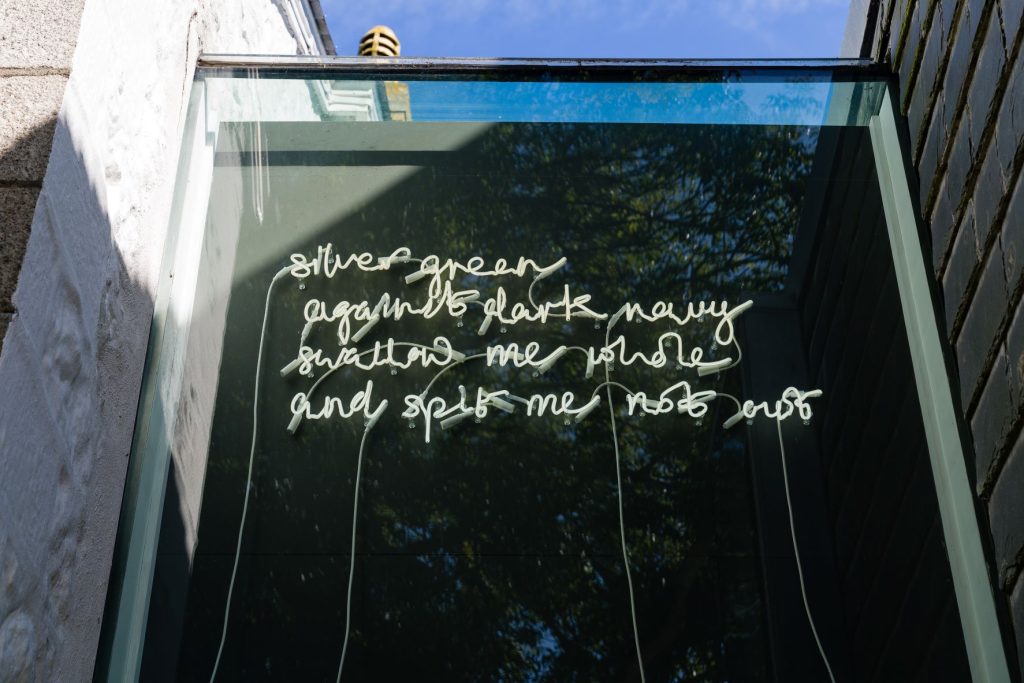 silver green
against dark navy
swallow me whole
and spit me not out